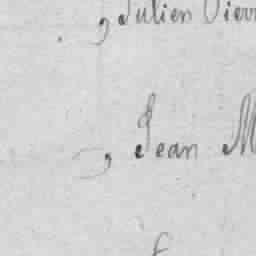 , Julien Pierr
, Jean M